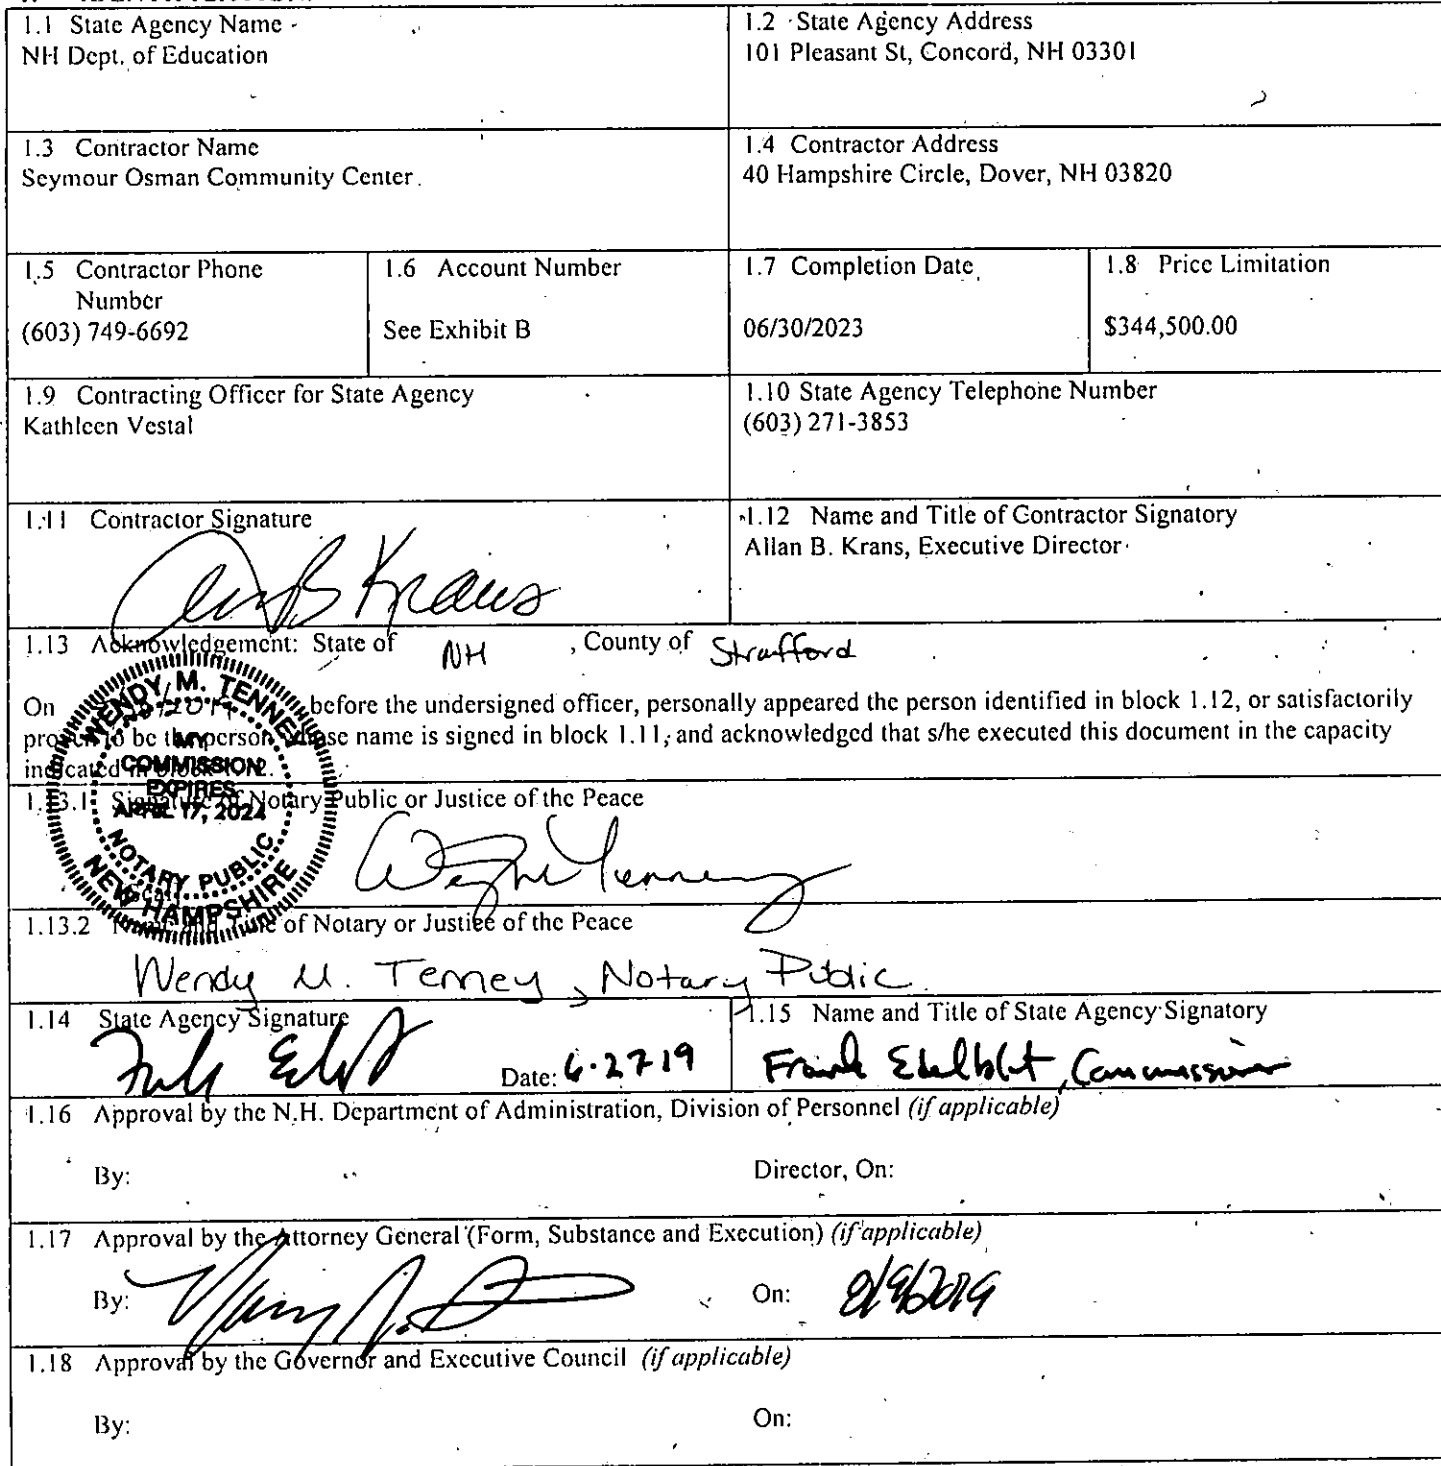 1.1 State Agency Name
NH Dept. of Education
1.2 State Agency Address
101 Pleasant St, Concord, NH 03301
1.3 Contractor Name
Seymour Osman Community Center
1.4 Contractor Address
40 Hampshire Circle, Dover, NH 03820
1.5 Contractor Phone
Number
(603) 749-6692
1.6 Account Number
See Exhibit B
1.7 Completion Date
06/30/2023
1.8 Price Limitation
$344,500.00
1.9 Contracting Officer for State Agency
Kathleen Vestal
1.10 State Agency Telephone Number
(603) 271-3853
1.11 Contractor Signature
B Krans
1.12 Name and Title of Contractor Signatory
Allan B. Krans, Executive Director
1.13 Acknowledgement: State of NH , County of Strafford
On before the undersigned officer, personally appeared the person identified in block 1.12, or satisfactorily
proven to be the person whose name is signed in block 1.11, and acknowledged that s/he executed this document in the capacity
indicated in block 1.12.
WENDY M. TENNEY
MY
COMMISSION
EXPIRES
APRIL 17, 2024
NOTARY PUBLIC
NEW HAMPSHIRE
1.13.1 Signature of Notary Public or Justice of the Peace
1.13.2 Name and Title of Notary or Justice of the Peace
Wendy M. Tenney, Notary Public
1.14 State Agency Signature
Date: 6.27.19
1.15 Name and Title of State Agency Signatory
Frank Edelblut, Commissioner
1.16 Approval by the N.H. Department of Administration, Division of Personnel (if applicable)
By:
Director, On:
1.17 Approval by the Attorney General (Form, Substance and Execution) (if applicable)
By:
On:
1.18 Approval by the Governor and Executive Council (if applicable)
By:
On: